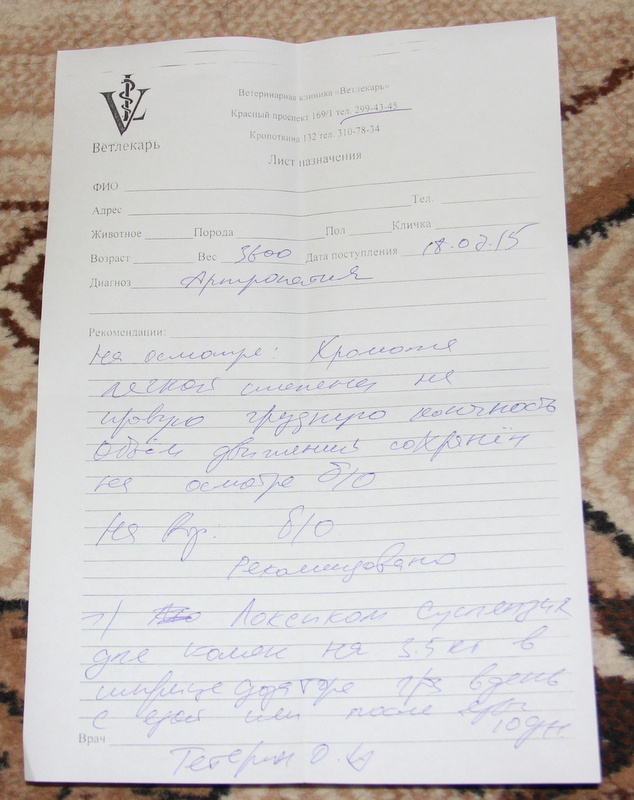 Ветлекарь
Ветеринарная клиника «Ветлекарь»
Красный проспект 169/1 тел. 299-43-45
Кропоткина 132 тел. 310-78-34
Лист назначения
ФИО
Адрес Тел.
Животное Порода Пол Кличка
Возраст Вес 3600 Дата поступления 18.02.15
Диагноз Артропатия
Рекомендации:
На осмотре: Хромота
легкой степени на
правую грудную конечность
Объём движений сохранён
на осмотре б/о
На Rg: б/о
Рекомендовано
1) Локсиком суспензия
для кошек на 3.5 кг в
шприце дозаторе 1/з в день
с едой или после еды
10 дн.
Врач
Тетерин О.